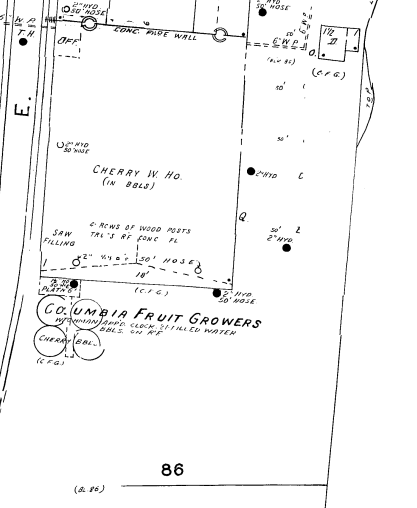 2" HYD
50' HOSE
50' HOSE
W.P.
T.H.
6
CONC. FIRE WALL
50'
6" W.P.
6" W.P.
(BLK 86)
O.
1½
D
1
(C.F.G.)
OFF.
50'
50'
E.
2" HYD
50' HOSE
2" HYD
CHERRY W. HO.
(IN BBLS)
6 ROWS OF WOOD POSTS
TRL'S RF CONC FL
SAW
FILLING
Q
50'
2" HYD.
2"
50' HOSE
1
18'
(C.F.G.)
2" HYD
50' HOSE
PLATF
COLUMBIA FRUIT GROWERS
WTCHMAN APP'D. CLOCK.
FILLED WATER
BBLS. ON RF
CHERRY BBL
(C.F.G.)
86
(BL. 86)